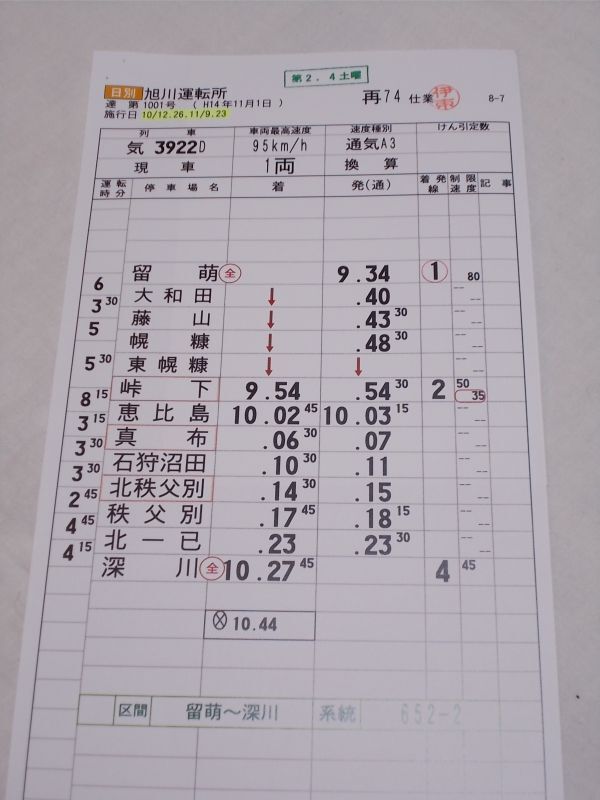 第2.4土曜
日別 旭川運転所
達 第1001号 (H14年11月1日) 再74仕業 伊東 8-7
施行日 10/12.26.11/9.23
列車 車両最高速度 速度種別 けん引定数
気 3922D 95km/h 通気A3
現車 1両 換算
運転時分 停車場名 着 発(通) 着発線 制限速度 記事
留萌 全 9.34 1 80
6
大和田 ↓ .40
3 30
藤山 ↓ .43 30
5
幌糠 ↓ .48 30
東幌糠 ↓ ↓
5 30
峠下 9.54 .54 30 2 50 35
8 15
恵比島 10.02 45 10.03 15
3 15
真布 .06 30 .07
3 30
石狩沼田 .10 30 .11
3 30
北秩父別 .14 30 .15
2 45
秩父別 .17 45 .18 15
4 45
北一已 .23 .23 30
4 15
深川 全 10.27 45 4 45
⊗ 10.44
区間 留萌〜深川 系統 652-2